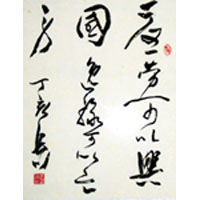 憂勞可以興
國逸豫可以亡
身 丁